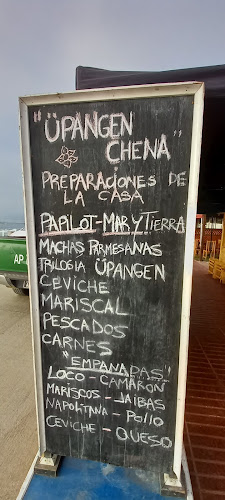 "ÜPANGEN
CHENA"
PREPARACIONES DE
LA CASA
PAPILOT-MAR Y TIERRA
MACHAS PARMESANAS
TRILOGIA ÜPANGEN
CEVICHE
MARISCAL
PESCADOS
CARNES
"EMPANADAS"
LOCO - CAMARÓN
MARISCOS - JAIBAS
NAPOLITANA - POLLO
CEVICHE - QUESO
AP.